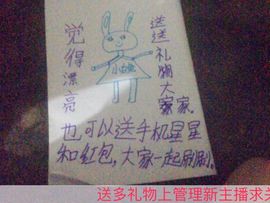 觉得漂亮
小兔
送送礼物大家.
也可以送手机星星
和红包,大家一起刷刷.
送多礼物上管理新主播求